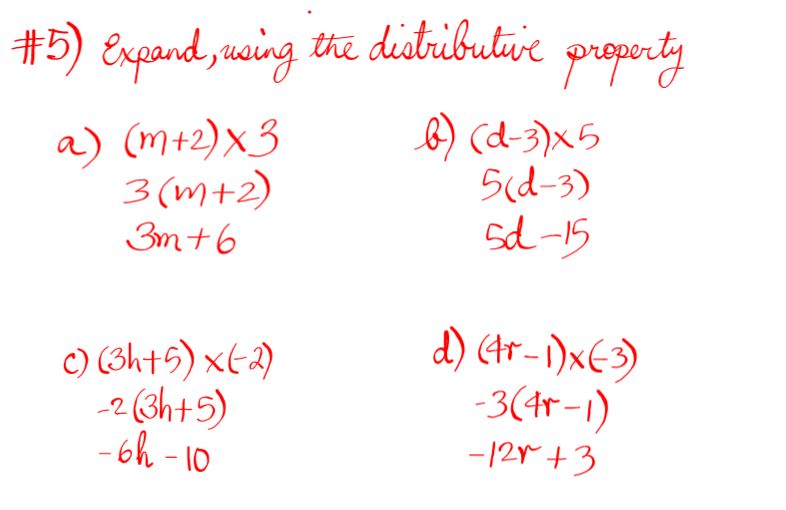 #5) Expand, using the distributive property
a) (m+2)×3
3(m+2)
3m+6
b) (d-3)×5
5(d-3)
5d-15
c) (3h+5)×(-2)
-2(3h+5)
-6h-10
d) (4r-1)×(-3)
-3(4r-1)
-12r+3